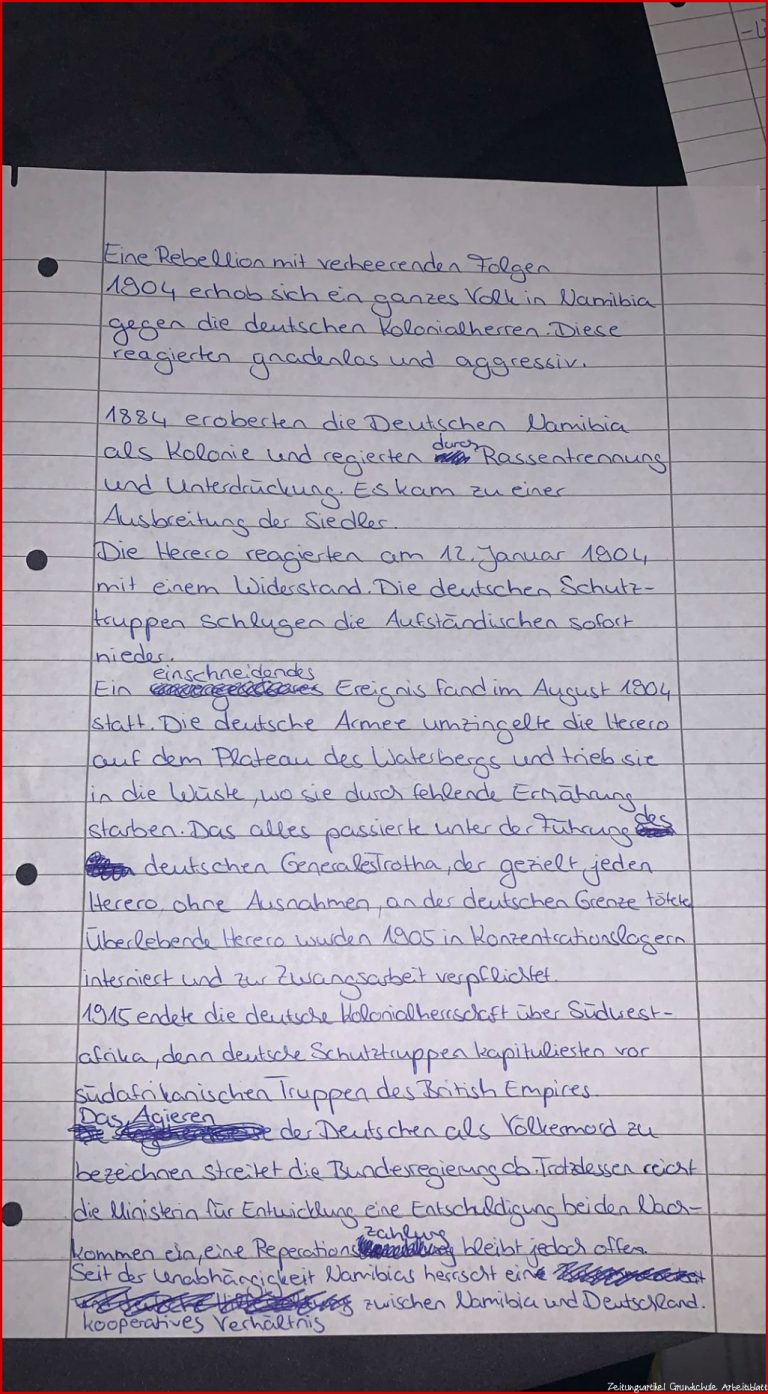 Eine Rebellion mit verheerenden Folgen
1904 erhob sich ein ganzes Volk in Namibia
gegen die deutschen Kolonialherren. Diese
reagierten gnadenlos und aggressiv.
1884 eroberten die Deutschen Namibia
als Kolonie und regierten durch Rassentrennung
und Unterdrückung. Es kam zu einer
Ausbreitung der Siedler.
Die Herero reagierten am 12. Januar 1904
mit einem Widerstand. Die deutschen Schutz-
truppen schlugen die Aufständischen sofort
nieder.
Ein einschneidendes Ereignis fand im August 1904
statt. Die deutsche Armee umzingelte die Herero
auf dem Plateau des Waterbergs und trieb sie
in die Wüste, wo sie durch fehlende Ernährung
starben. Das alles passierte unter der Führung des
deutschen Generales Trotha, der gezielt jeden
Herero, ohne Ausnahmen, an der deutschen Grenze tötete
Überlebende Herero wurden 1905 in Konzentrationslagern
interniert und zur Zwangsarbeit verpflichtet.
1915 endete die deutsche Kolonialherrschaft über Südwest-
afrika, denn deutsche Schutztruppen kapitulierten vor
südafrikanischen Truppen des British Empires.
Das Agieren der Deutschen als Völkermord zu
bezeichnen streitet die Bundesregierung ab. Trotzdessen reicht
die Ministerin für Entwicklung eine Entschuldigung bei den Nach-
kommen ein, eine Reperationszahlung bleibt jedoch offen.
Seit der Unabhängigkeit Namibias herrscht ein
kooperatives Verhältnis zwischen Namibia und Deutschland.
Zeitungsartikel Grundschule Arbeitsblatt